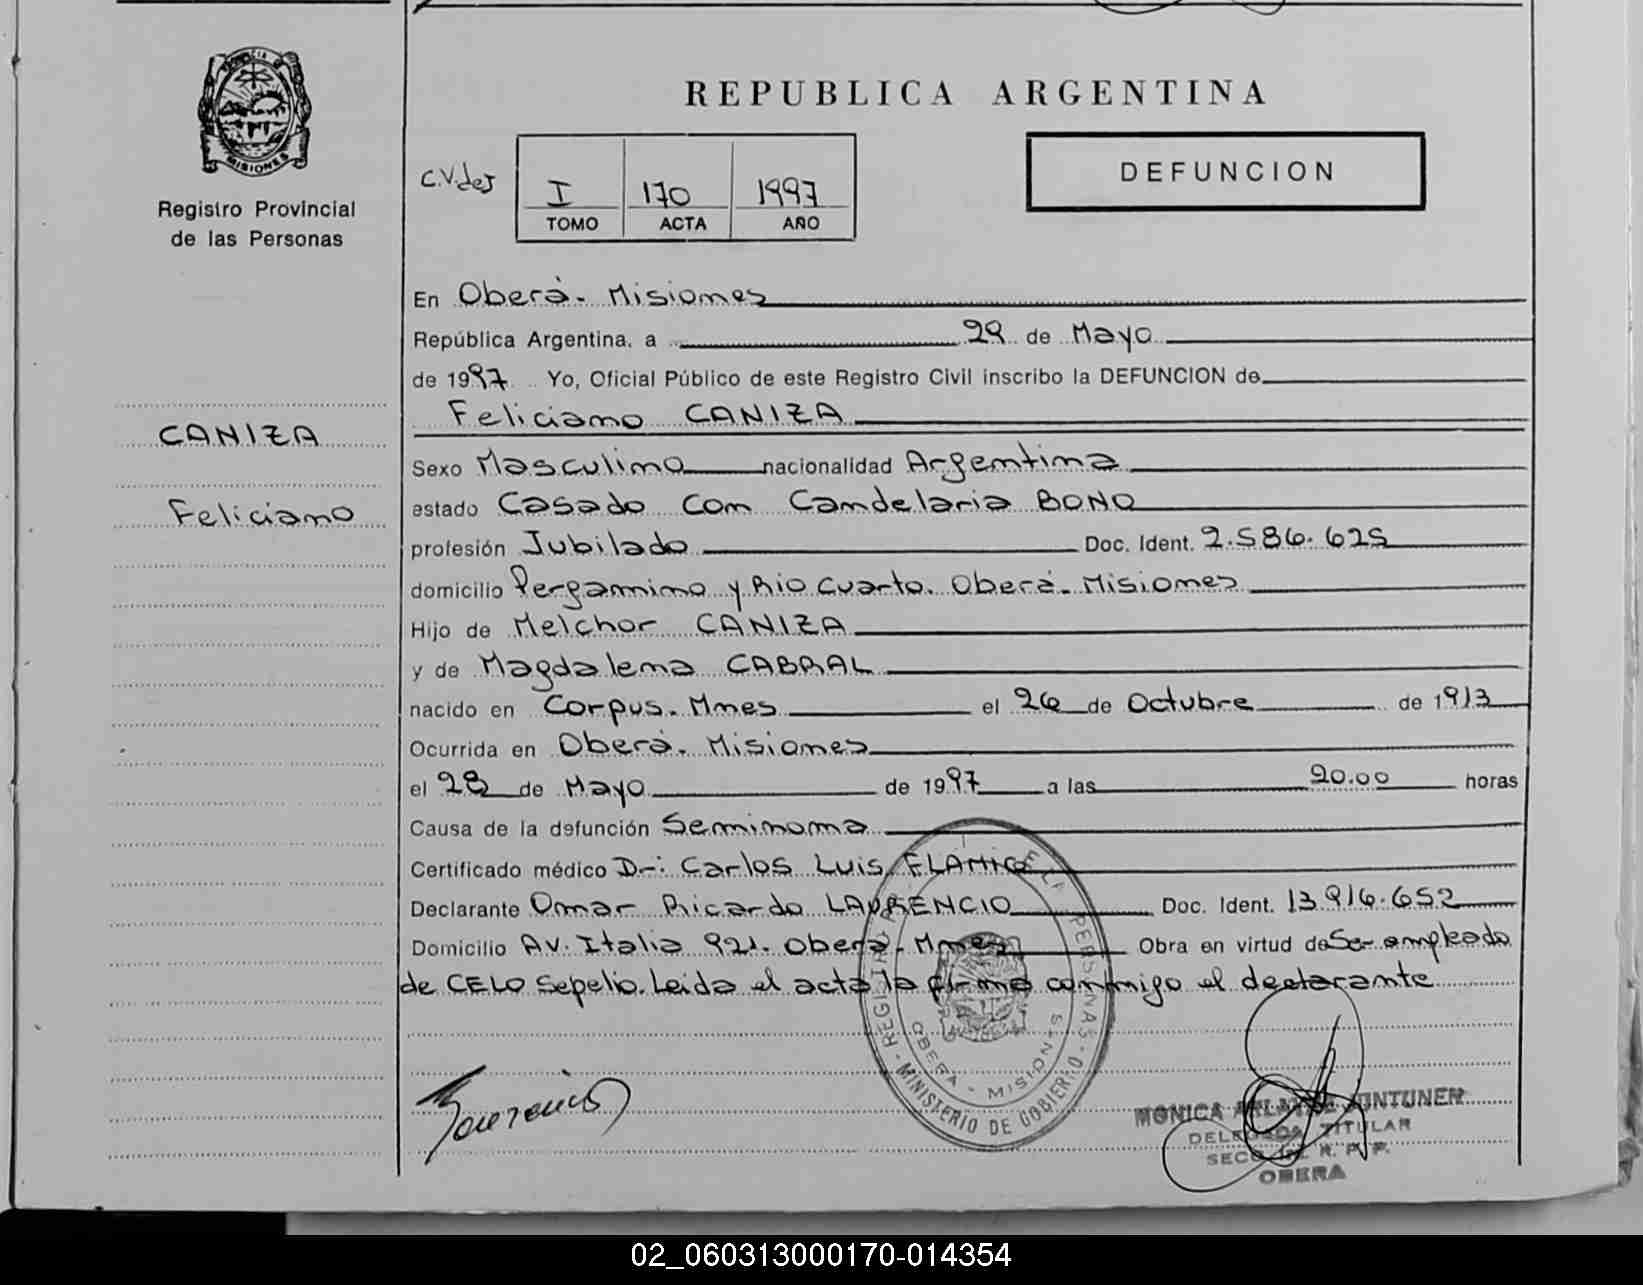 REPUBLICA ARGENTINA
MISIONES
Registro Provincial
de las Personas
C.V.des
I 170 1997
TOMO ACTA AÑO
DEFUNCION
En Oberá. Misiones
República Argentina, a 29 de Mayo
de 1997 Yo, Oficial Público de este Registro Civil inscribo la DEFUNCION de
Feliciano CANIZA
CANIZA
Feliciano
Sexo Masculino nacionalidad Argentina
estado Casado con Candelaria BONO
profesión Jubilado Doc. Ident. 2.586.625
domicilio Pergamino y Rio Cuarto. Oberá. Misiones
Hijo de Melchor CANIZA
y de Magdalena CABRAL
nacido en Corpus. Mnes el 26 de Octubre de 1913
Ocurrida en Oberá. Misiones
el 28 de Mayo de 1997 a las 20.00 horas
Causa de la defunción Seminoma
Certificado médico Dr: Carlos Luis
Declarante Omar Ricardo LAURENCIO Doc. Ident. 13.916.652
Domicilio Av. Italia 921. Oberá. Mnes Obra en virtud de Ser empleado
de CELO Sepelio. Leida el acta la firma conmigo el declarante
REGISTRO DE LAS PERSONAS
OBERA - MISIONES
MINISTERIO DE GOBIERNO
MONICA JUNTUNEN
DELEGADA TITULAR
SECC. R. P. P.
OBERA
02_060313000170-014354